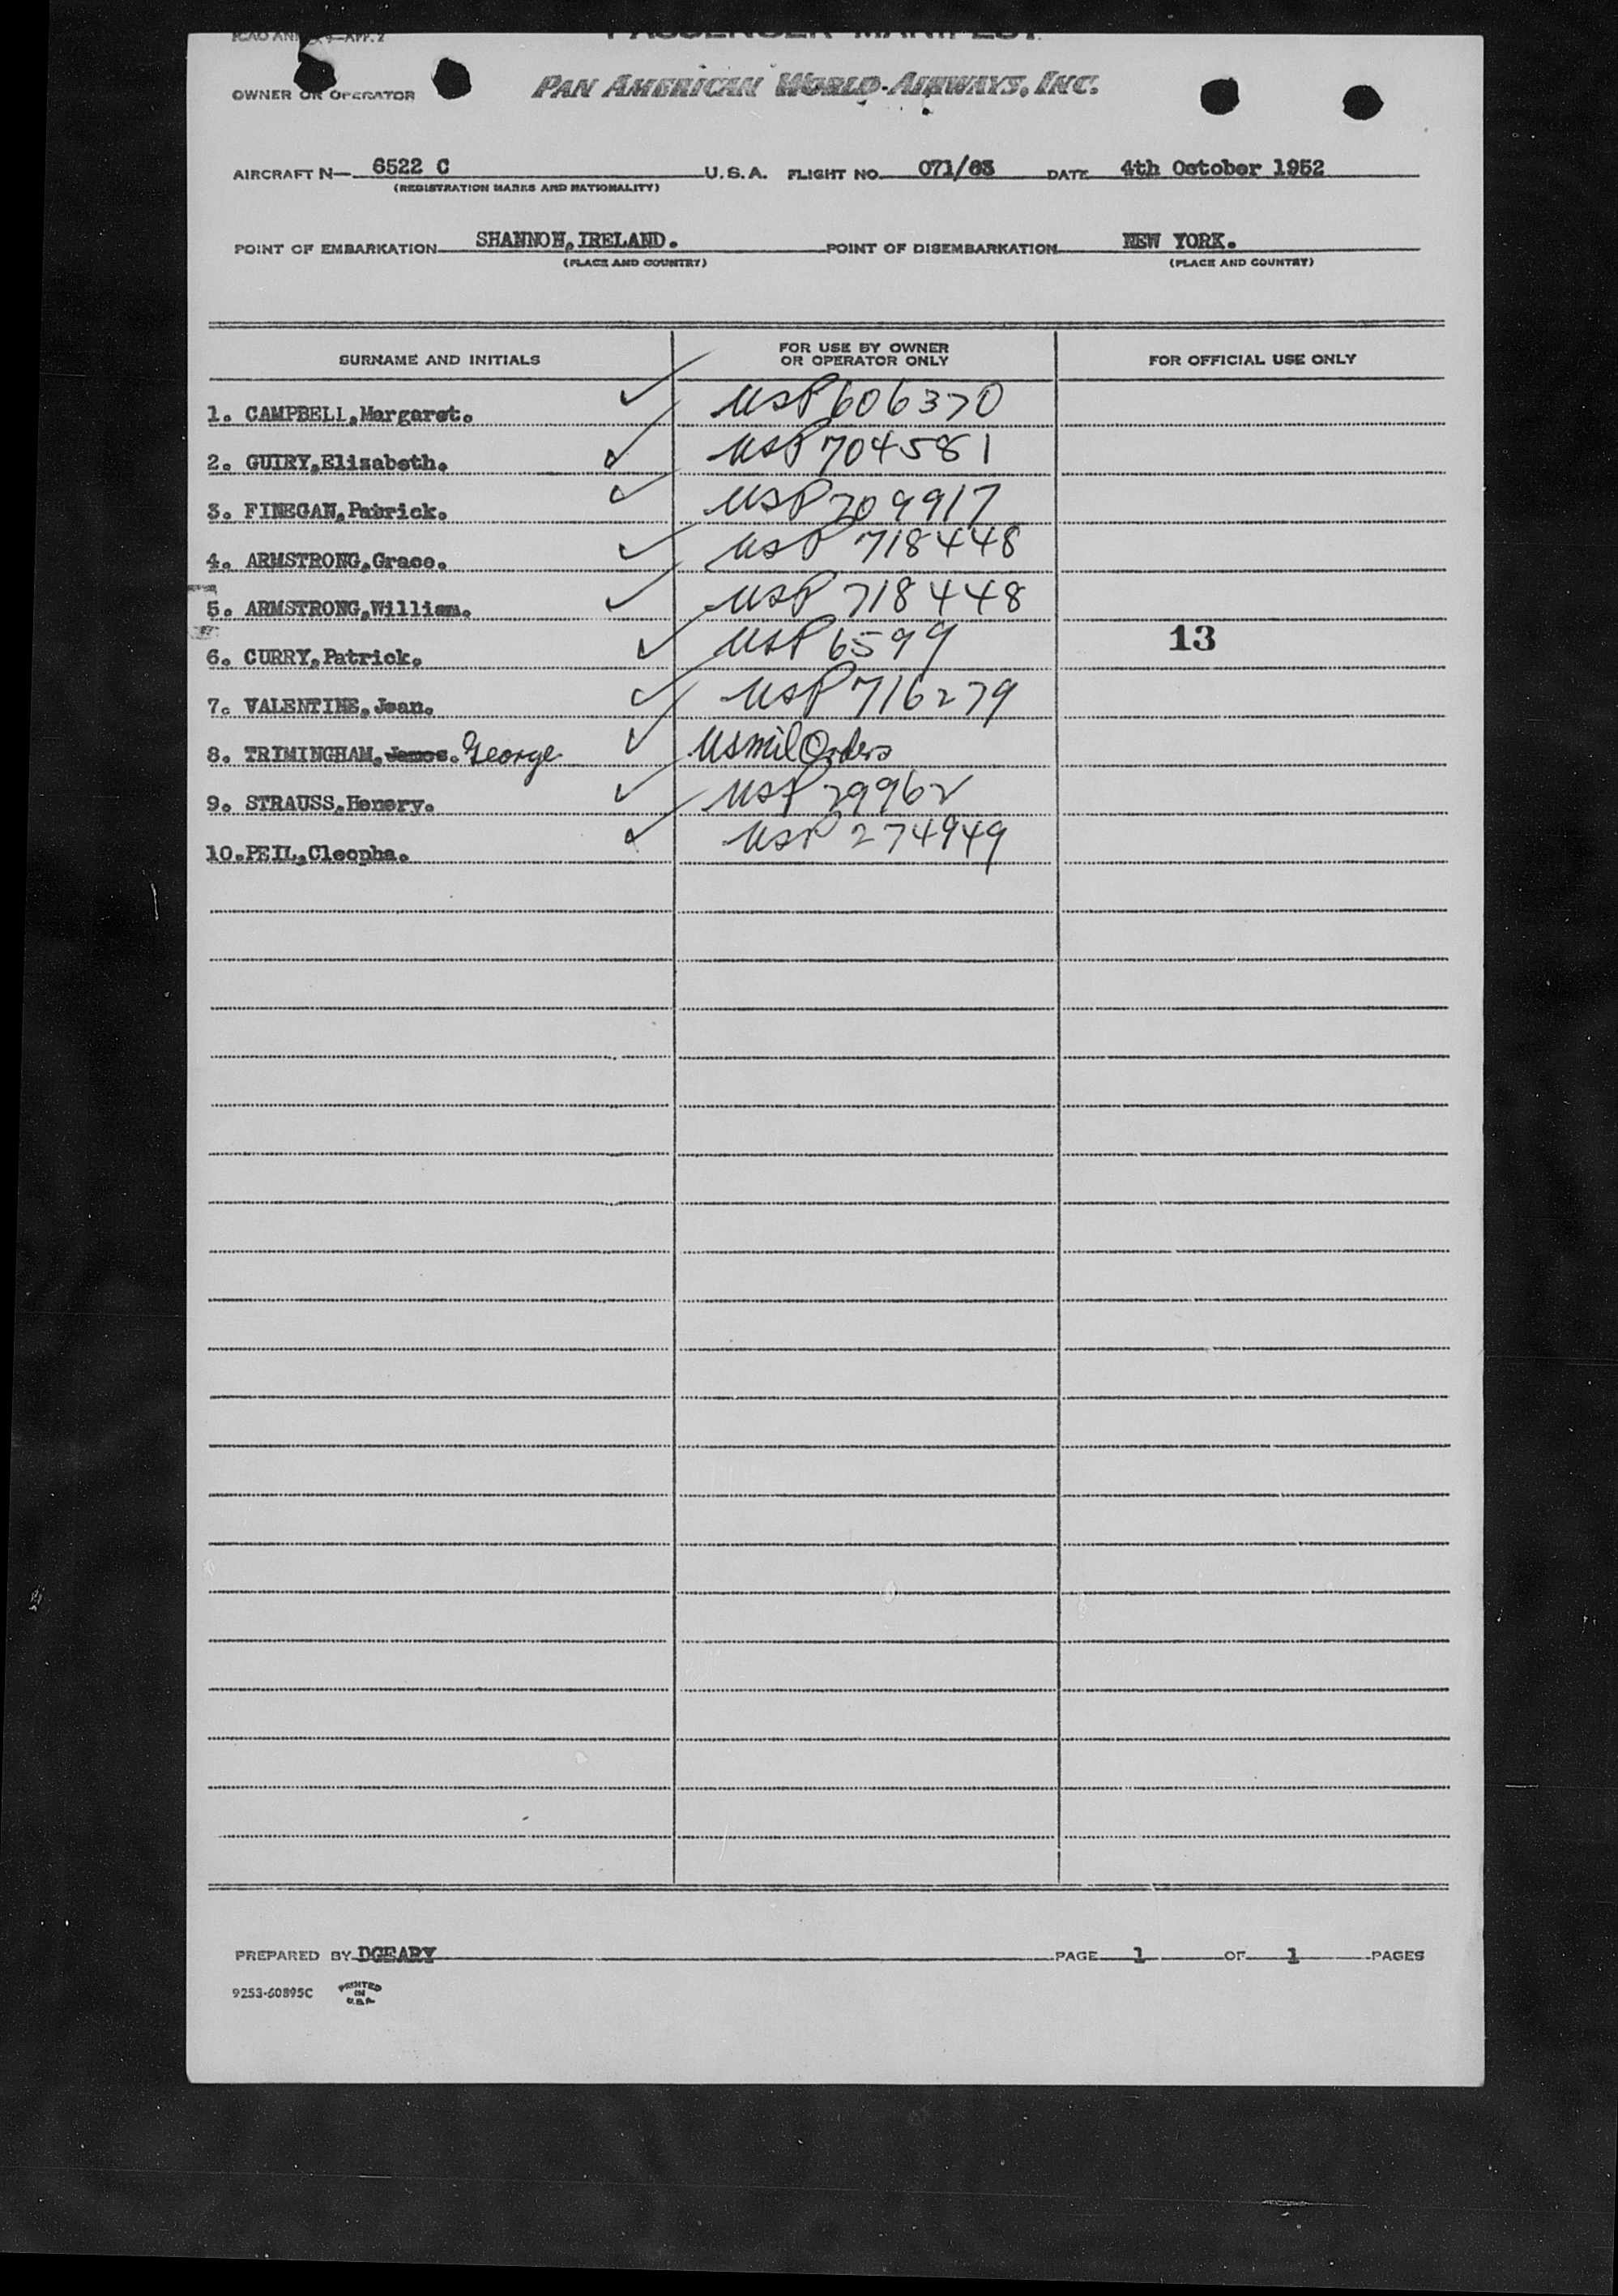 PASSENGER MANIFEST
OWNER OR OPERATOR PAN AMERICAN WORLD AIRWAYS, INC.
AIRCRAFT N— 6522 C U.S.A. FLIGHT NO. 071/03 DATE 4th October 1952
(REGISTRATION MARKS AND NATIONALITY)
POINT OF EMBARKATION SHANNON, IRELAND. POINT OF DISEMBARKATION NEW YORK.
(PLACE AND COUNTRY) (PLACE AND COUNTRY)
SURNAME AND INITIALS FOR USE BY OWNER OR OPERATOR ONLY FOR OFFICIAL USE ONLY
1. CAMPBELL, Margaret. ✓ USP 606370
2. GUIRY, Elizabeth. ✓ USP 704581
3. FINEGAN, Patrick. ✓ USP 209917
4. ARMSTRONG, Grace. ✓ USP 718448
5. ARMSTRONG, William. ✓ USP 718448
6. CURRY, Patrick. ✓ USP 6599 13
7. VALENTINE, Jean. ✓ USP 716279
8. TRIMINGHAM, James. George ✓ US mil Orders
9. STRAUSS, Henery. ✓ USP 29962
10. PEIL, Cleopha. ✓ USP 274949
PREPARED BY DGEARY PAGE 1 OF 1 PAGES
9253-60895C PRINTED IN U.S.A.